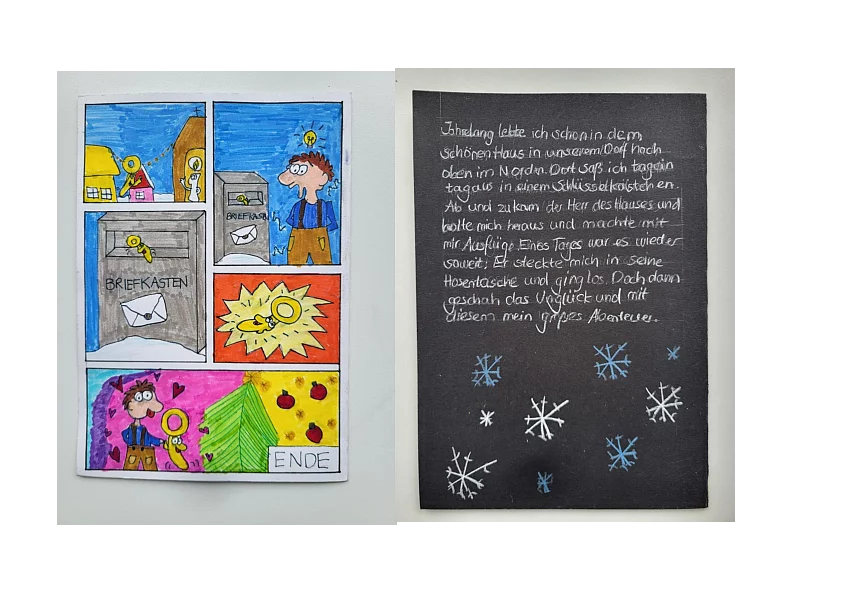 BRIEFKASTEN
BRIEFKASTEN
ENDE
Jahrelang lebte ich schon in dem
schönen Haus in unserem Dorf hoch
oben im Norden. Dort saß ich tagein
tagaus in einem Schlüsselkästchen.
Ab und zu kam der Herr des Hauses und
holte mich heraus und machte mit
mir Ausflüge. Eines Tages war es wieder
soweit; Er steckte mich in seine
Hosentasche und ging los. Doch dann
geschah das Unglück und mit
diesem mein großes Abenteuer.